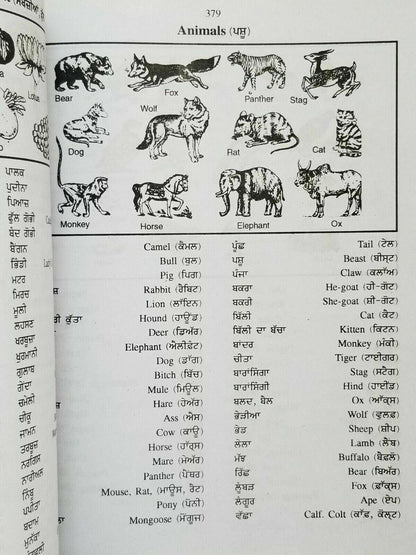 379
Animals (ਪਸ਼ੂ)
Lotus
Bear
Fox
Panther
Stag
Dog
Wolf
Rat
Cat
Monkey
Horse
Elephant
Ox
ਪਾਲਕ
ਪੁਦੀਨਾ
ਪਿਆਜ਼
ਫੁੱਲ ਗੋਭੀ
ਬੰਦ ਗੋਭੀ
ਬੈਂਗਨ
ਭਿੰਡੀ
ਮਟਰ
ਮਿਰਚ
ਮੂਲੀ
ਲਹਸਣ
ਖਰਬੂਜ਼ਾ
ਖੁਰਮਾਨੀ
ਗੁਲਾਬ
ਗੇਂਦਾ
ਚਮੇਲੀ
ਚੀਕੂ
ਜਾਮਨ
ਤਰਬੂਜ਼
ਨਰਗਿਸ
ਨਾਰੀਅਲ
ਨਿੰਬੂ
ਪਪੀਤਾ
ਬਦਾਮ
ਮੁਨੱਕਾ
Camel (ਕੈਮਲ) ਪੂੰਛ Tail (ਟੇਲ)
Bull (ਬੁਲ) ਪਸ਼ੂ Beast (ਬੀਸਟ)
Pig (ਪਿਗ) ਪੰਜਾ Claw (ਕਲਾਅ)
Rabbit (ਰੈਬਿਟ) ਬਕਰਾ He-goat (ਹੀ-ਗੋਟ)
Lion (ਲਾਇਨ) ਬਕਰੀ She-goat (ਸ਼ੀ-ਗੋਟ)
ਕੁੱਤਾ Hound (ਹਾਊਂਡ) ਬਿੱਲੀ Cat (ਕੈਟ)
Deer (ਡਿਅੱਰ) ਬਿੱਲੀ ਦਾ ਬੱਚਾ Kitten (ਕਿਟਨ)
Elephant (ਐਲੀਫੈਂਟ) ਬਾਂਦਰ Monkey (ਮੰਕੀ)
Dog (ਡਾੱਗ) ਚੀਤਾ Tiger (ਟਾਈਗਰ)
Bitch (ਬਿੱਚ) ਬਾਰਾਂਸਿੰਗਾ Stag (ਸਟੈਗ)
Mule (ਮਿਊਲ) ਬਾਰਾਂਸਿੰਗੀ Hind (ਹਾਈਂਡ)
Hare (ਹੇਅੱਰ) ਬਲਦ, ਬੈਲ Ox (ਆੱਕਸ)
Ass (ਐਸ) ਭੇੜੀਆ Wolf (ਵੁਲਫ਼)
Cow (ਕਾਊ) ਭੇਡ Sheep (ਸ਼ੀਪ)
Horse (ਹਾੱਰਸ) ਲੇਲਾ Lamb (ਲੈਂਬ)
Mare (ਮੇਅੱਰ) ਮੱਝ Buffalo (ਬੈਫ਼ਲੋ)
Panther (ਪੈਂਥਰ) ਰਿੱਛ Bear (ਬਿਅੱਰ)
Mouse, Rat, (ਮਾਊਸ, ਰੈਟ) ਲੂੰਬੜ Fox (ਫ਼ਾੱਕਸ)
Pony (ਪੋਨੀ) ਲੰਗੂਰ Ape (ਏਪ)
Mongoose (ਮੰਗੂਜ਼) ਵੱਛਾ Calf. Colt (ਕਾੱਫ਼, ਕੋਲ੍ਟ)